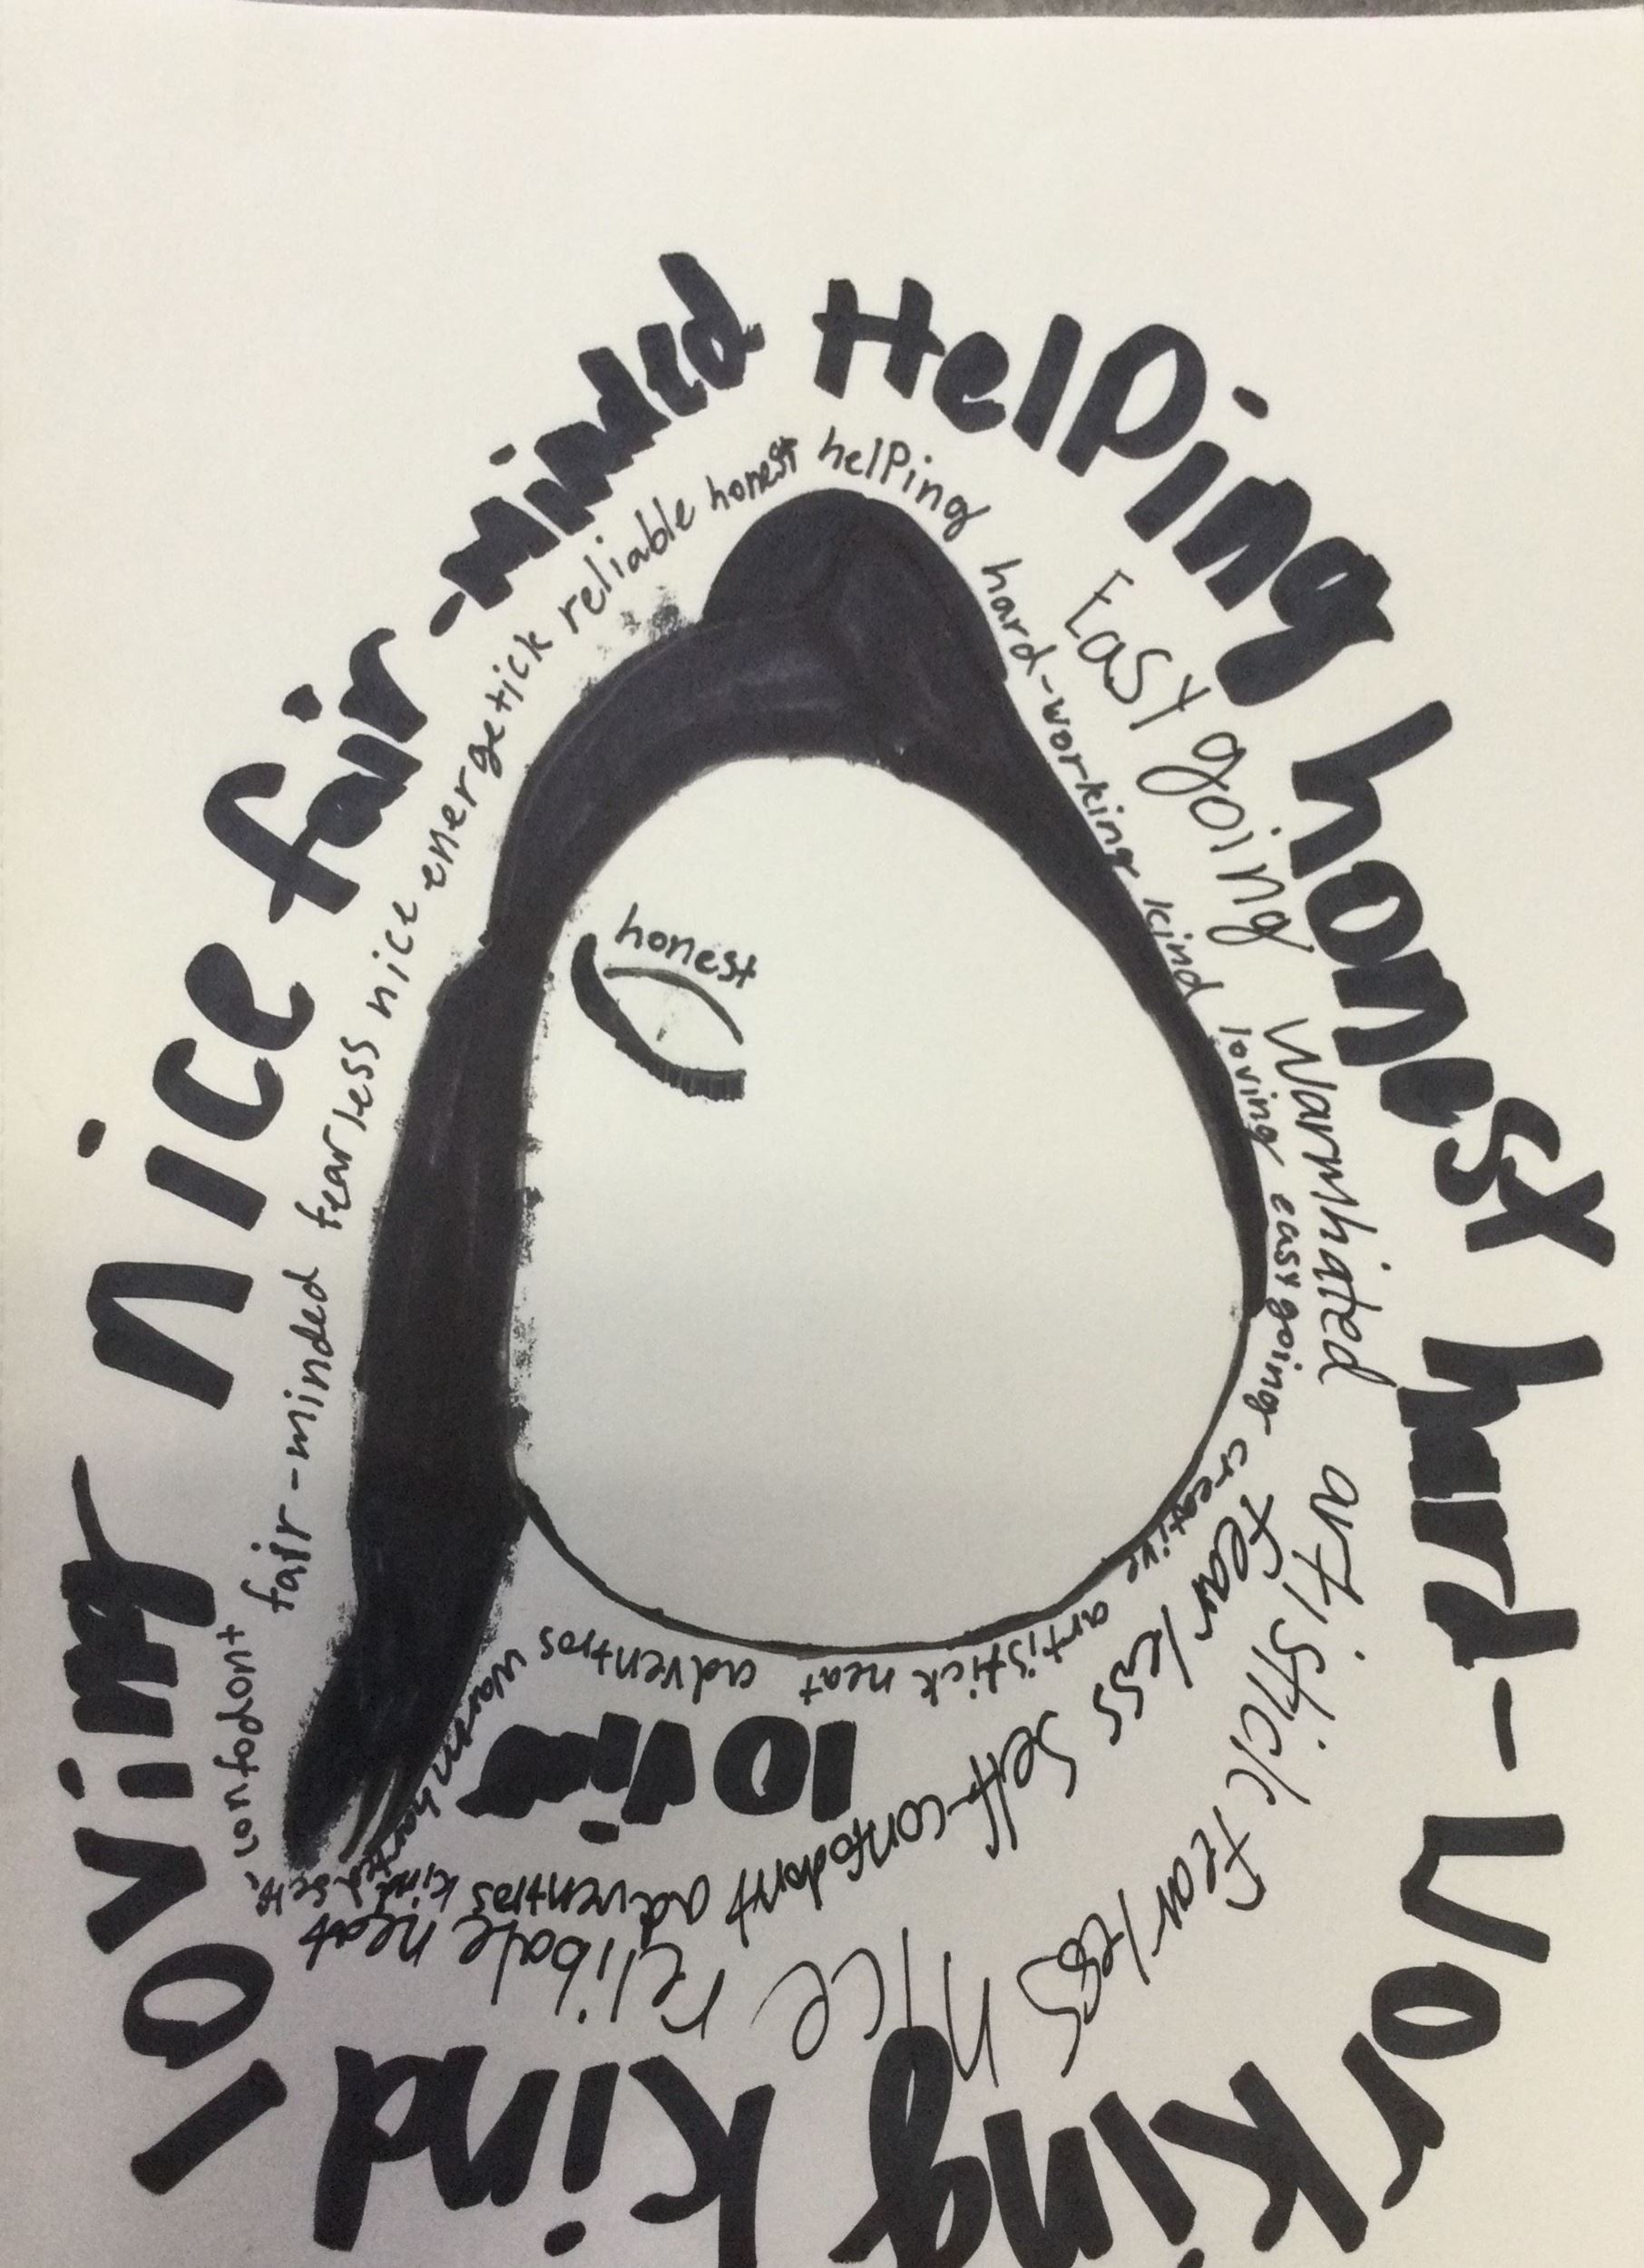 Helping honest hard-working kind loving nice fair-minded
fair-minded fearless nice energetick reliable honest helping hard-working kind loving easy going creative artistick neat adventros waremharted self-confodont
Easy going Warmhated artistick fearless nice relibale neat
fearless self-confodont adventros kind
lovin
honest